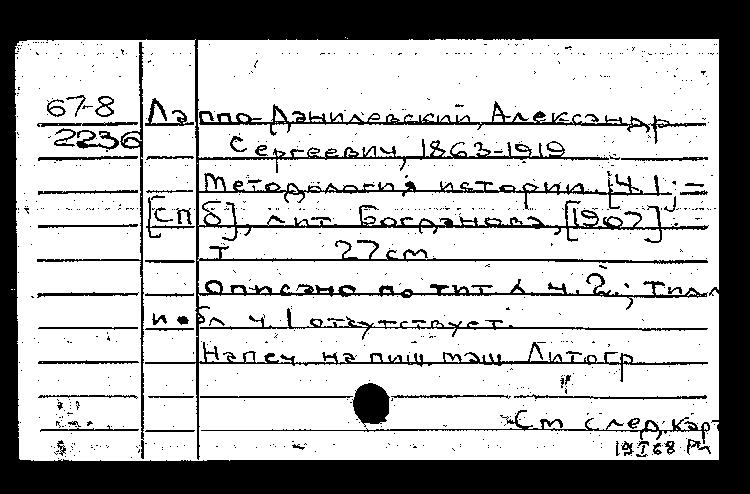 67-8 Лаппо-Данилевский, Александр
2236 Сергеевич, 1863-1919
Методология истории. [Ч. 1; –
[СПб], лит. Богданова, [1907].
т 27 см.
Описано по тит л ч. 2.;
и обл ч. 1 отсутствует.
Напеч. на пиш. маш. Литогр
См след. карт
19 I 68